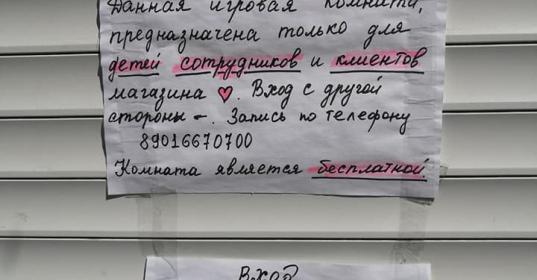 Данная игровая комната,
предназначена только для
детей сотрудников и клиентов
магазина ♥. Вход с другой
стороны –. Запись по телефону
89016670700
Комната является бесплатной
Вход